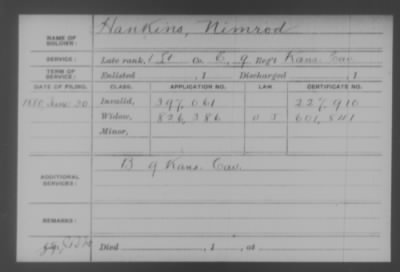 NAME OF SOLDIER: Hankins, Nimrod
SERVICE: Late rank, 1 Co. E, 9 Reg't Kans. Cav.
TERM OF SERVICE: Enlisted , 1 Discharged , 1
DATE OF FILING. CLASS. APPLICATION NO. LAW CERTIFICATE NO.
1880 June 30 Invalid, 397,061 227,910
Widow, 826,386 601,841
Minor,
ADDITIONAL SERVICES: B 9 Kans. Cav.
REMARKS:
Died , 1 , at